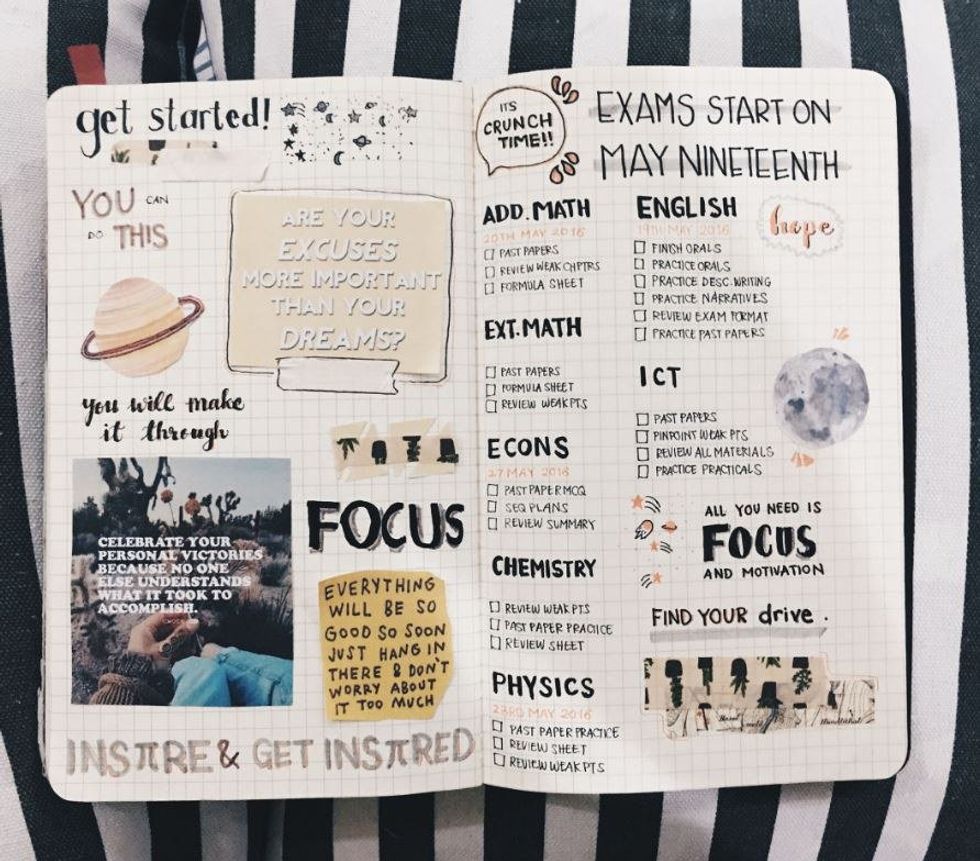 get started!
YOU CAN
DO THIS
ARE YOUR
EXCUSES
MORE IMPORTANT
THAN YOUR
DREAMS?
you will make
it through
CELEBRATE YOUR
PERSONAL VICTORIES
BECAUSE NO ONE
ELSE UNDERSTANDS
WHAT IT TOOK TO
ACCOMPLISH.
FOCUS
EVERYTHING
WILL BE SO
GOOD SO SOON
JUST HANG IN
THERE & DON'T
WORRY ABOUT
IT TOO MUCH
INSπRE & GET INSπRED
ITS
CRUNCH
TIME!!
EXAMS START ON
MAY NINETEENTH
ADD. MATH
20TH MAY 2016
PAST PAPERS
REVIEW WEAK CHPTRS
FORMULA SHEET
EXT. MATH
PAST PAPERS
FORMULA SHEET
REVIEW WEAK PTS
ECONS
27 MAY 2016
PAST PAPER MCQ
SEQ PLANS
REVIEW SUMMARY
CHEMISTRY
REVIEW WEAK PTS
PAST PAPER PRACTICE
REVIEW SHEET
PHYSICS
23RD MAY 2016
PAST PAPER PRACTICE
REVIEW SHEET
REVIEW WEAK PTS
ENGLISH
19TH MAY 2016
FINISH ORALS
PRACTICE ORALS
PRACTICE DESC. WRITING
PRACTICE NARRATIVES
REVIEW EXAM FORMAT
PRACTICE PAST PAPERS
hope
ICT
PAST PAPERS
PINPOINT WEAK PTS
REVIEW ALL MATERIALS
PRACTICE PRACTICALS
ALL YOU NEED IS
FOCUS
AND MOTIVATION
FIND YOUR drive.